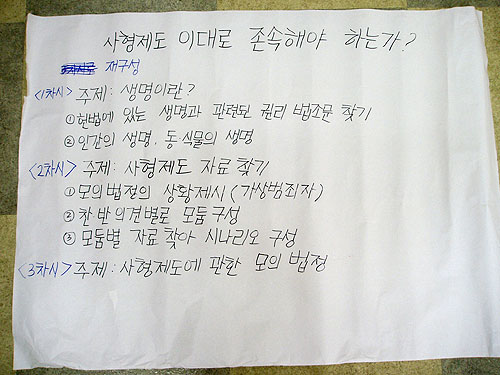 사형제도 이대로 존속해야 하는가?
재구성
<1차시> 주제: 생명이란?
① 헌법에 있는 생명과 관련된 권리 법조문 찾기
② 인간의 생명, 동·식물의 생명
<2차시> 주제: 사형제도 자료 찾기
① 모의법정의 상황제시 (가상범죄자)
② 찬반 의견별로 모둠 구성
③ 모둠별 자료 찾아 시나리오 구성
<3차시> 주제: 사형제도에 관한 모의 법정